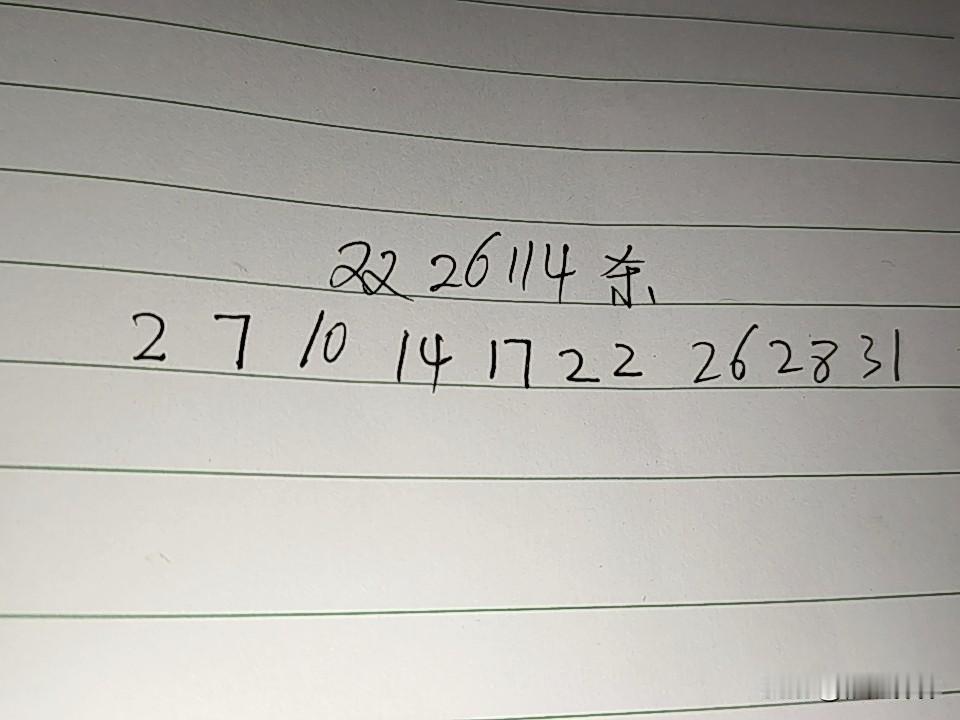 22 26114 杀、
2 7 10 14 17 22 26 28 31